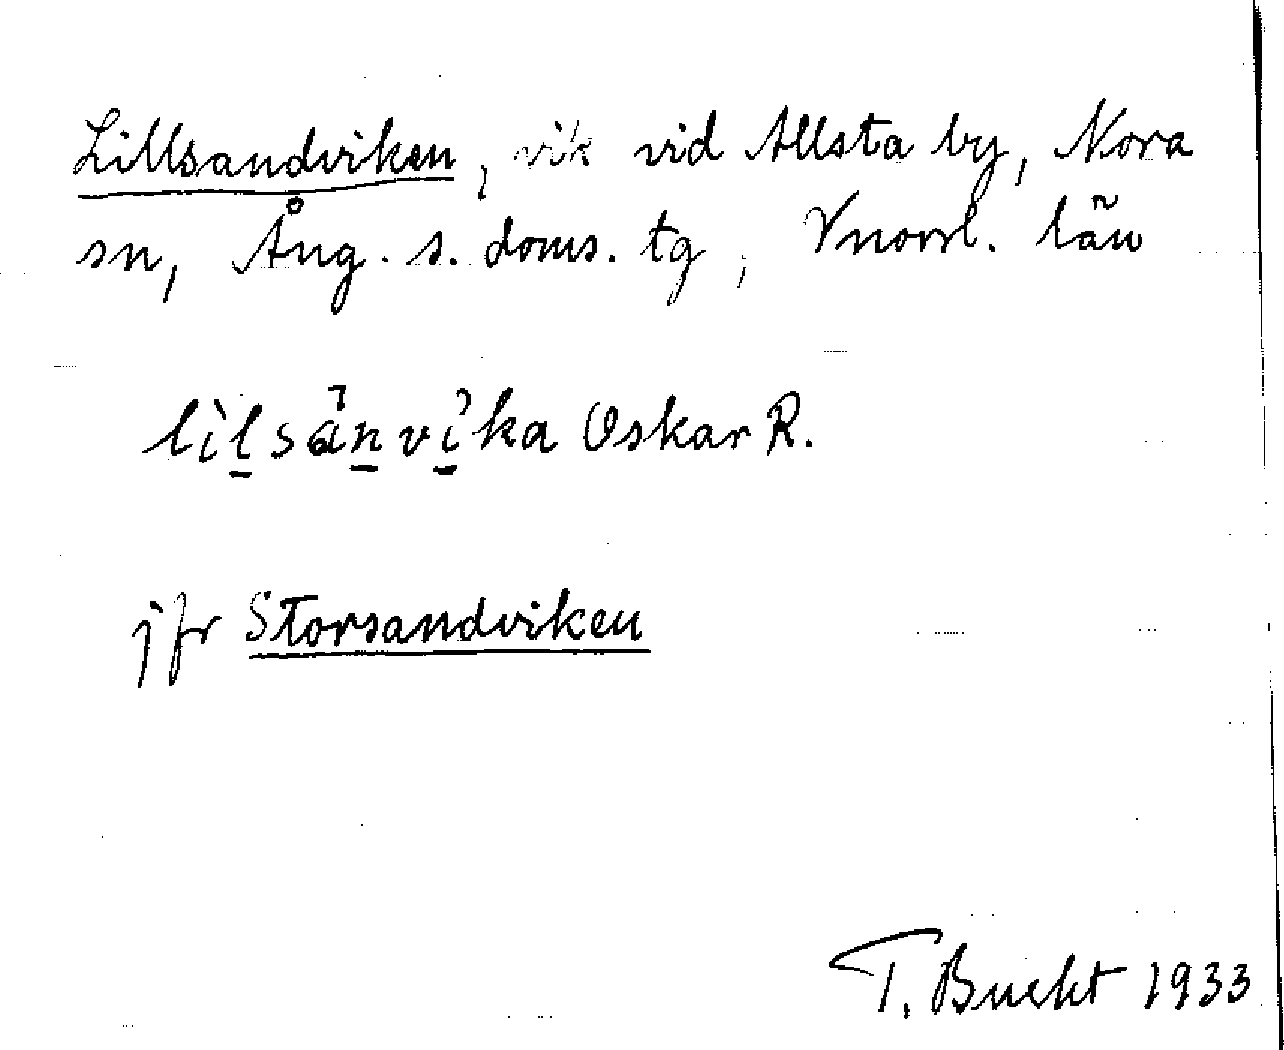 Lillsandviken, vik vid Allsta by, Nora
sn, Ång. s. doms. tg, Vnorrl. län
lìl̲sä́n̲vi̲ka Oskar R.
jfr Storsandviken
T. Bucht 1933